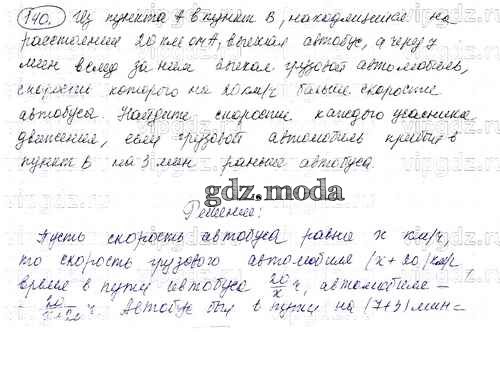 140. Из пункта А в пункт В, находящийся на
расстоянии 20 км от А, выехал автобус, а через 7
мин вслед за ним выехал грузовой автомобиль,
скорость которого на 20 км/ч больше скорости
автобуса. Найдите скорость каждого участника
движения, если грузовой автомобиль прибыл в
пункт В на 3 мин раньше автобуса.
gdz.moda
Решение:
Пусть скорость автобуса равна x км/ч,
то скорость грузового автомобиля (x+20) км/ч
время в пути автобуса 20/x ч, автомобиля –
20/x+20 ч. Автобус был в пути на (7+3) мин =